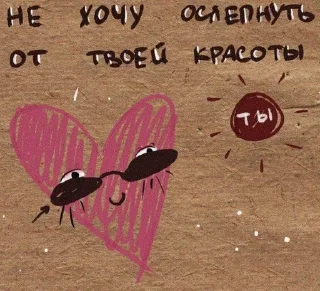 НЕ ХОЧУ ОСЛЕПНУТЬ
ОТ ТВОЕЙ КРАСОТЫ
ТЫ